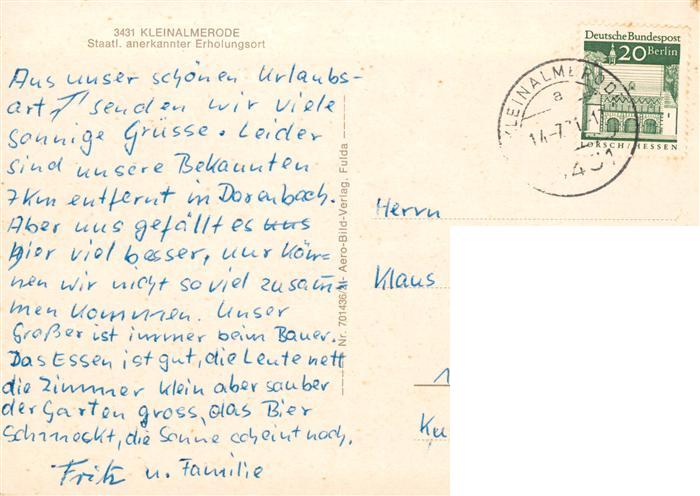 3431 KLEINALMERODE
Staatl. anerkannter Erholungsort
Aus unser schönen Urlaubs-
art senden wir viele
sonnige Grüsse. Leider
sind unsere Bekannten
7km entfernt in Dorenbach.
Aber uns gefällt es uns
hier viel besser, nur kön-
nen wir nicht so viel zusam-
men kommen. Unser
Großer ist immer beim Bauer.
Das Essen ist gut, die Leute nett
die Zimmer klein aber sauber
der Garten gross, das Bier
schmeckt, die Sonne scheint noch.
Fritz u. Familie
Nr. 701436/21- Aero-Bild-Verlag, Fulda
Deutsche Bundespost
20 Berlin
LORSCH/HESSEN
KLEINALMERODE
a
Herrn
Klaus